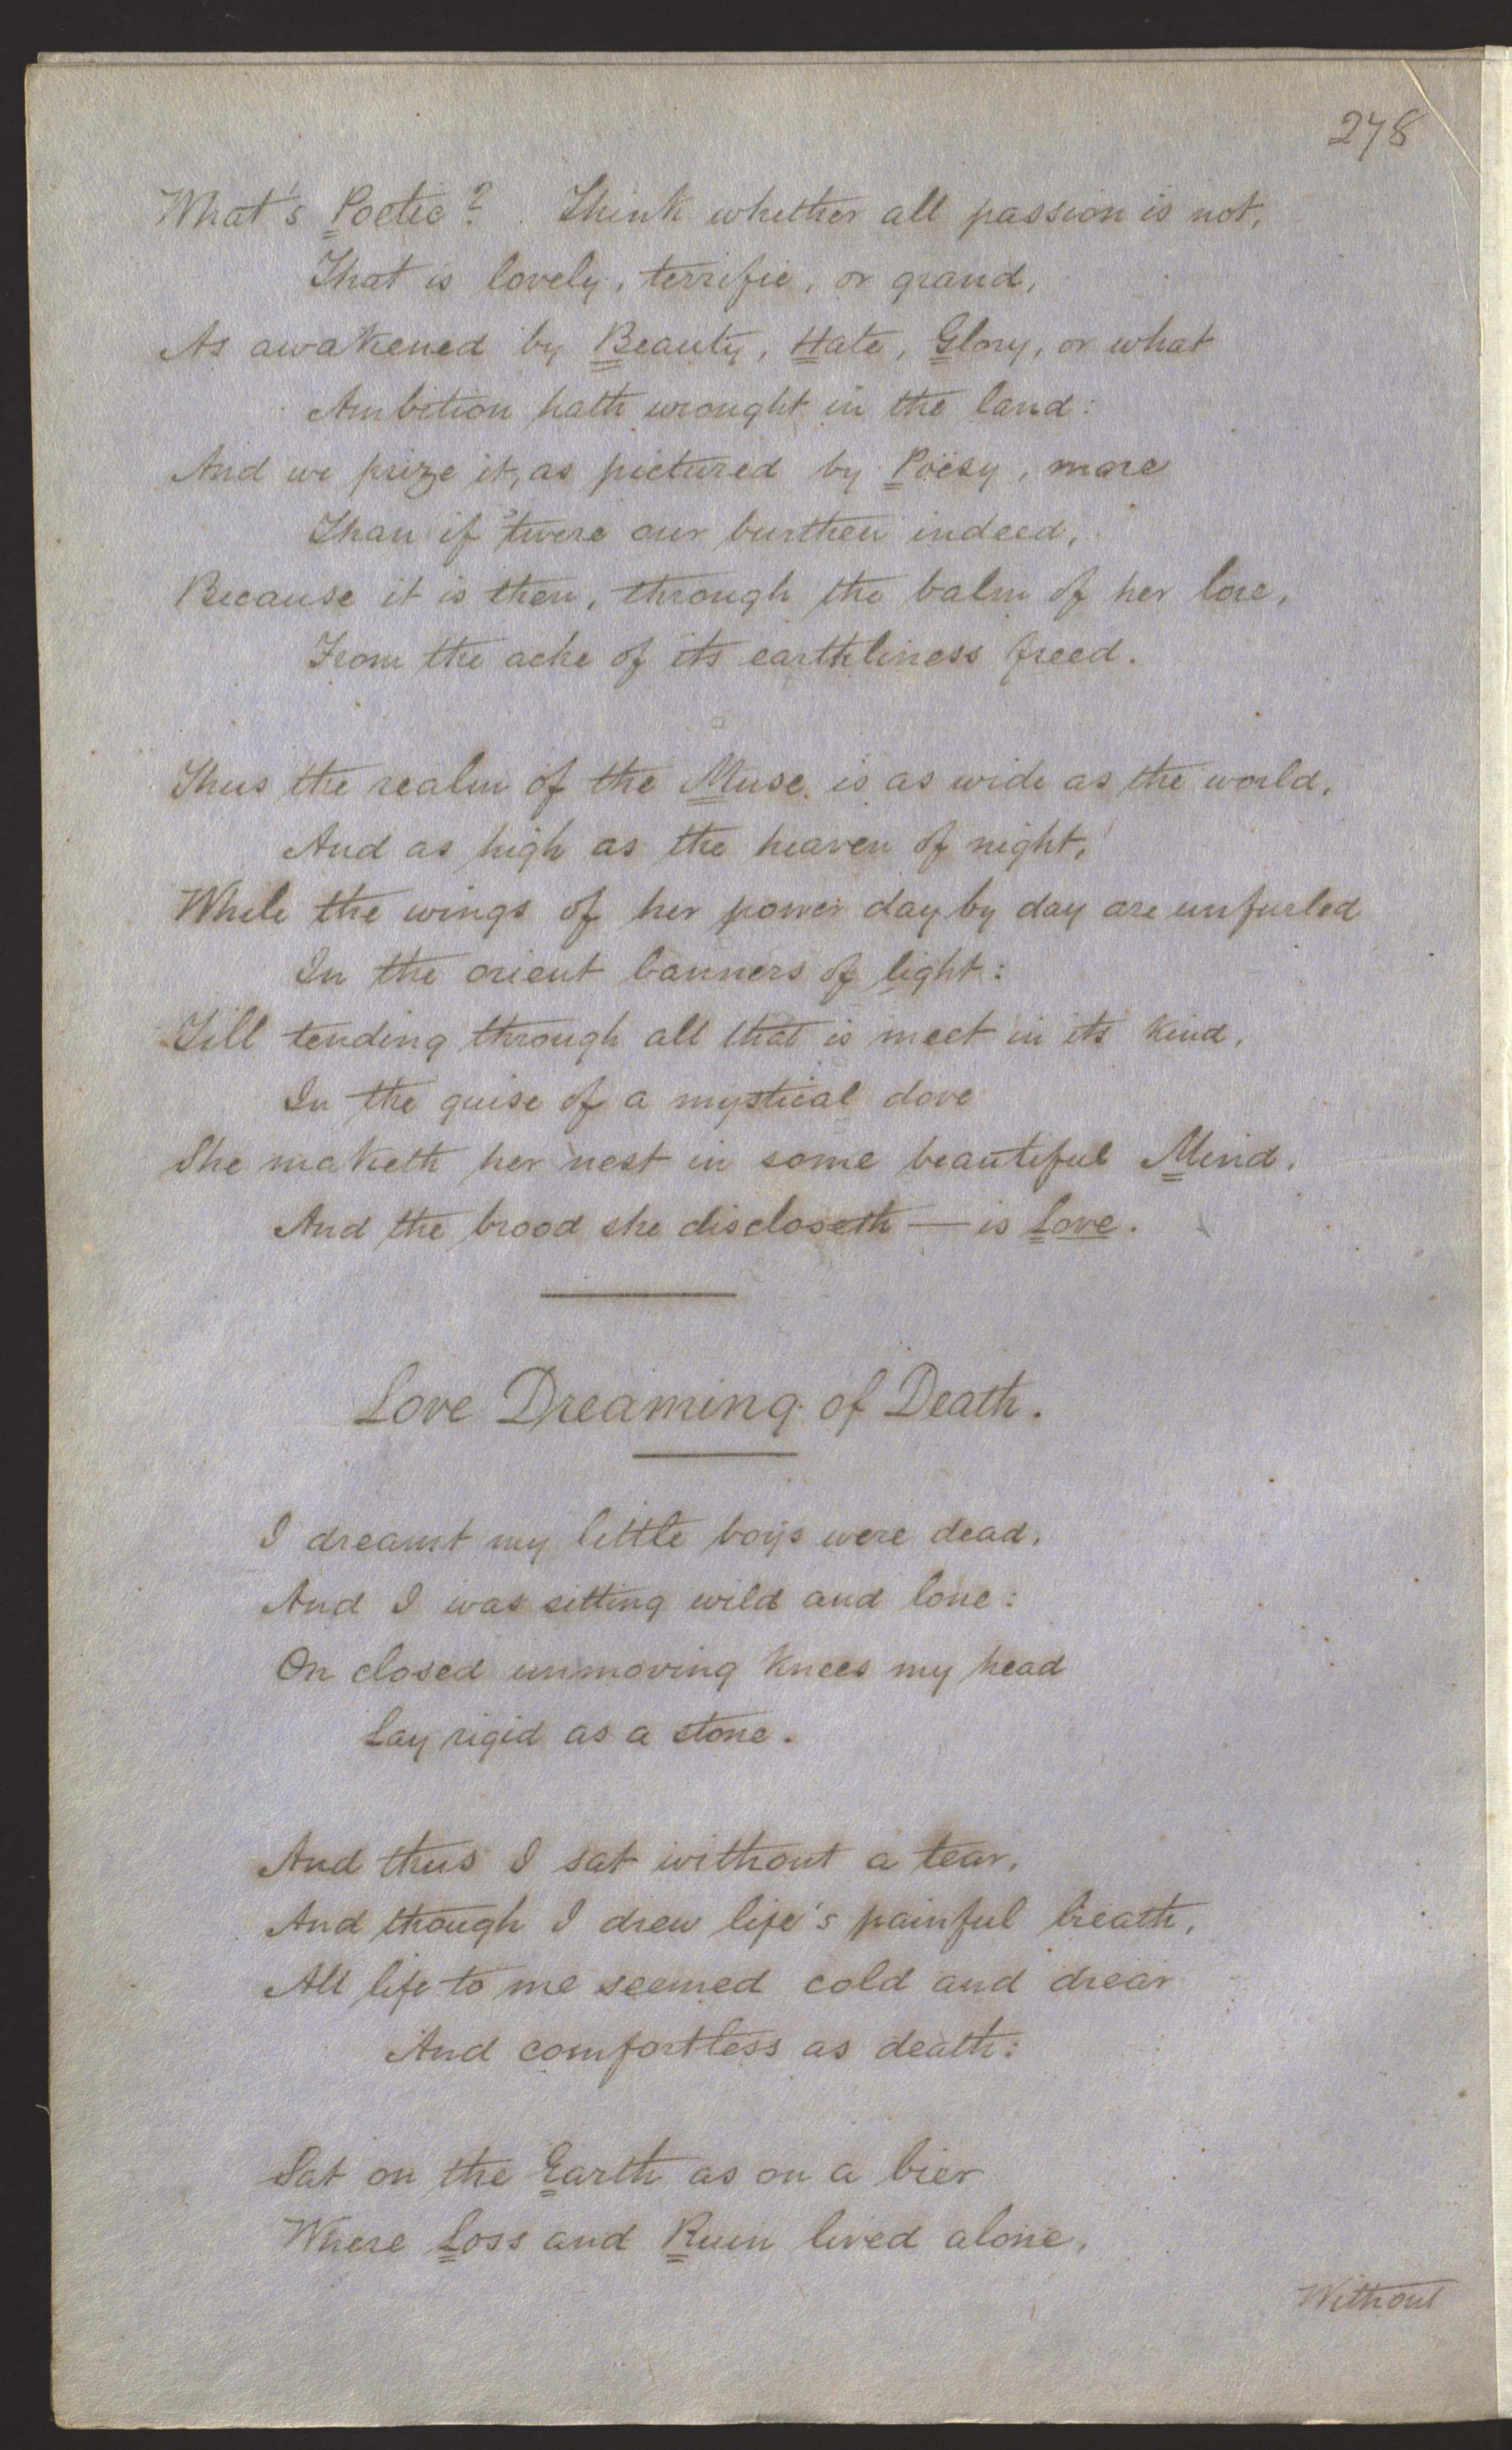 278
What's Poetic? Think whether all passion is not,
That is lovely, terrific, or grand,
As awakened by Beauty, Hate, Glory, or what
Ambition hath wrought in the land:
And we prize it, as pictured by Poësy, more
Than if 'twere our burthen indeed,
Because it is then, through the balm of her lore,
From the ache of its earthliness freed.
Thus the realm of the Muse is as wide as the world,
And as high as the heaven of night,
While the wings of her power day by day are unfurled
In the orient banners of light:
Till tending through all that is meet in its kind,
In the guise of a mystical dove
She maketh her nest in some beautiful Mind,
And the brood she discloseth — is Love.
Love Dreaming of Death.
I dreamt my little boys were dead,
And I was sitting wild and lone:
On closed unmoving knees my head
Lay rigid as a stone.
And thus I sat without a tear,
And though I drew life's painful breath,
All life to me seemed cold and drear
And comfortless as death:
Sat on the Earth as on a bier
Where Loss and Ruin lived alone,
Without